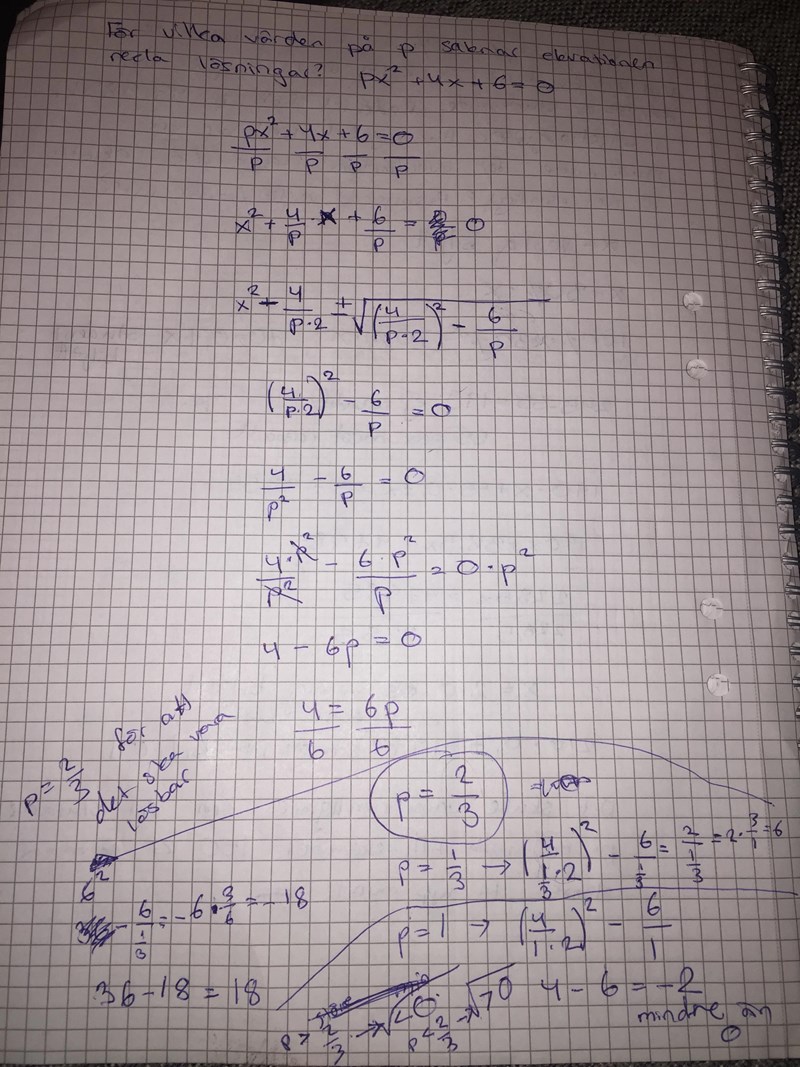 För vilka värden på p saknar ekvationen
reella lösningar? px² + 4x + 6 = 0
px²/p + 4x/p + 6/p = 0/p
x² + 4/p · x + 6/p = 0
x² - 4/(p·2) ± √((4/(p·2))² - 6/p)
(4/(p·2))² - 6/p = 0
4/p² - 6/p = 0
4·p²/p² - 6·p²/p = 0·p²
4 - 6p = 0
4/6 = 6p/6
p = 2/3 för att
det ska vara
lösbar
p = 2/3
p = 1/3 → (4/(1/3·2))² - 6/(1/3) = 2/(1/3) = 2·3/1 = 6
6²
- 6/(1/3) = -6·3/6 = -18
36 - 18 = 18
p = 1 → (4/(1·2))² - 6/1
4 - 6 = -2
mindre än
0
p > 2/3 → √<0
p < 2/3 → √>0